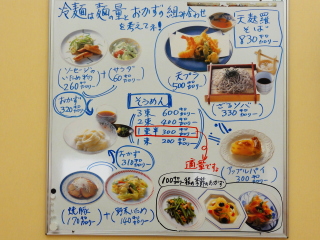 冷麺は麺の量とおかずの組み合わせ
を考えてネ!
天麩羅
そば
830キロカロリー
ソーセージの
いためもの
260キロカロリー
+
サラダ
60キロカロリー
天プラ
500キロカロリー
ざるソバ
330キロカロリー
おかず
320キロカロリー
そうめん
3束 600キロカロリー
2束 400キロカロリー
1束半 300キロカロリー
1束 200キロカロリー
適量です。
おかず
310キロカロリー
アップルパイ
300キロカロリー
焼豚
170キロカロリー
+
野菜いため
140キロカロリー